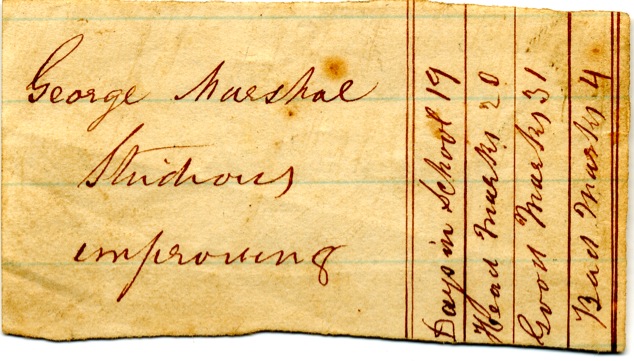 George Marshal
Studious
improving
Days in School 19
Head Marks 20
Good Marks 31
Bad Marks 4